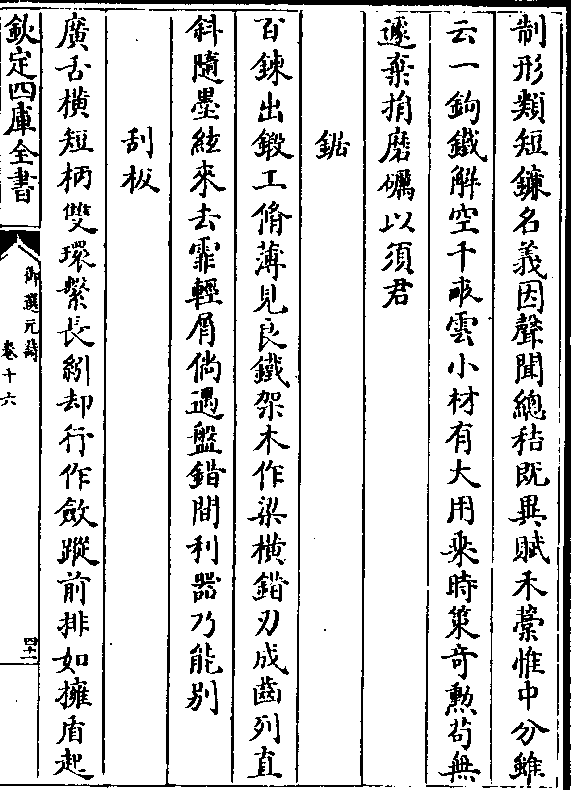 制形類短鐮名義因聲聞總秸既異賦禾藁惟中分雖
云一鉤鐵解空千畝雲小材有大用乘時策奇勲茍無
遽棄捐磨礪以須君
鋸
百鍊出鍛工脩薄見良鐵架木作梁橫錯刃成齒列直
斜隨墨絃來去霏輕屑倘遇盤錯間利器乃能別
刮板
廣舌橫短柄雙環繫長紖却行作斂蹤前排如擁盾起
欽定四庫全書
御選元詩
卷十六
四十二